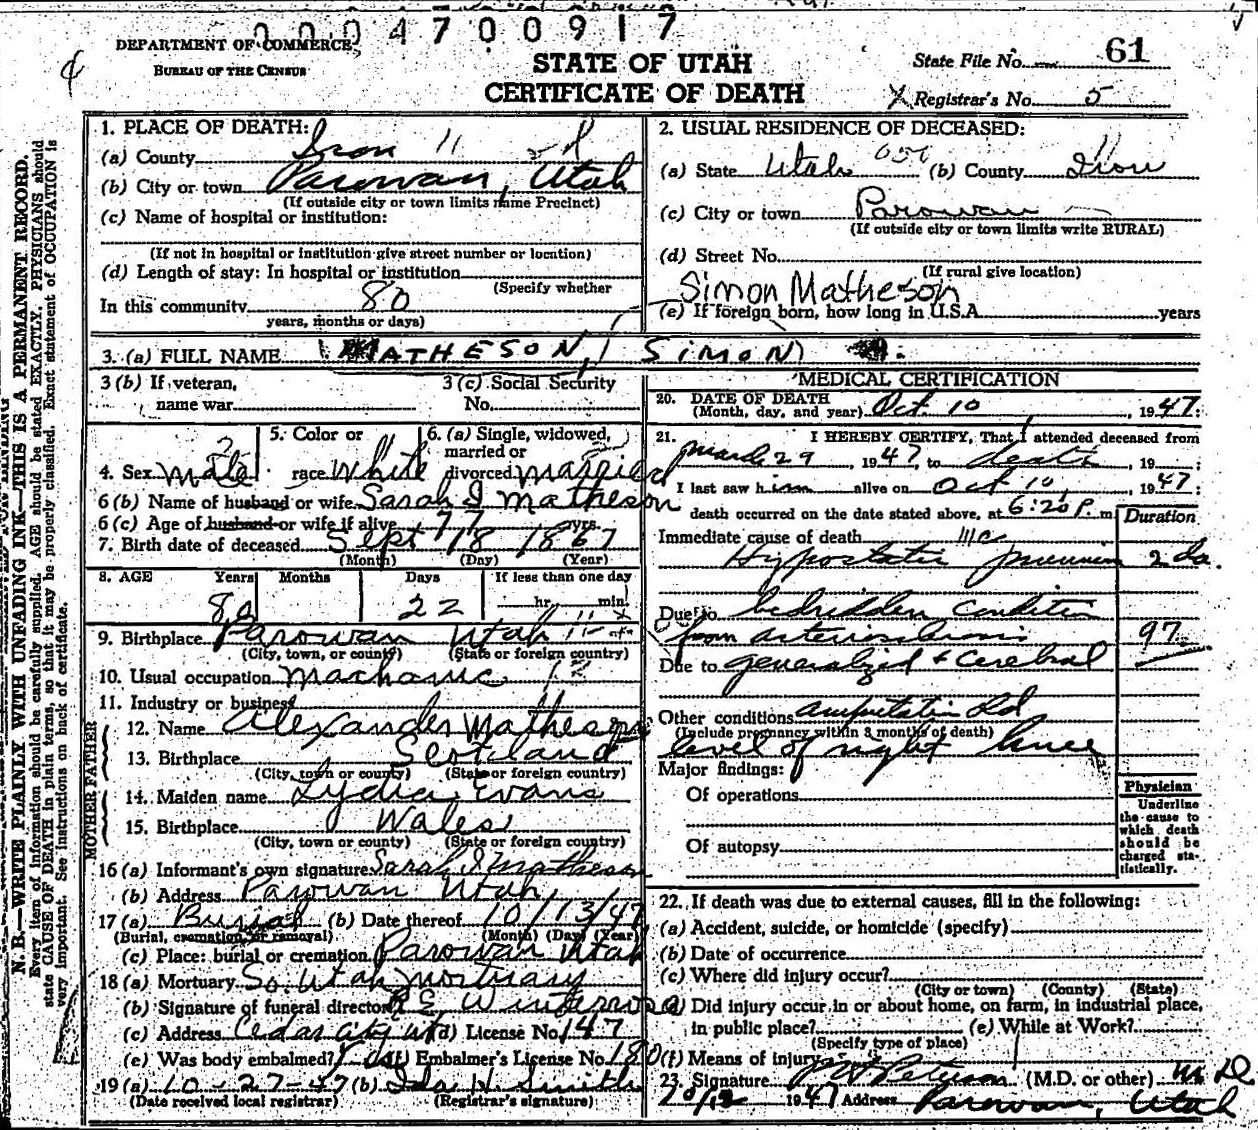 0004700917
DEPARTMENT OF COMMERCE
BUREAU OF THE CENSUS
STATE OF UTAH
CERTIFICATE OF DEATH
State File No. 61
X Registrar's No. 5
N. B.—WRITE PLAINLY WITH UNFADING INK—THIS IS A PERMANENT RECORD.
Every item of information should be carefully supplied. AGE should be stated EXACTLY. PHYSICIANS should
state CAUSE OF DEATH in plain terms, so that it may be properly classified. Exact statement of OCCUPATION is
very important. See instructions on back of certificate.
1. PLACE OF DEATH:
(a) County Iron 11
(b) City or town Parowan, Utah
(If outside city or town limits name Precinct)
(c) Name of hospital or institution:
(If not in hospital or institution give street number or location)
(d) Length of stay: In hospital or institution
(Specify whether
In this community 80
years, months or days)
2. USUAL RESIDENCE OF DECEASED:
(a) State Utah (b) County Iron 11
(c) City or town Parowan
(If outside city or town limits write RURAL)
(d) Street No.
(If rural give location)
Simon Matheson
(e) If foreign born, how long in U.S.A. years
3. (a) FULL NAME MATHESON, SIMON
3 (b) If veteran,
name war
3 (c) Social Security
No.
4. Sex Male 5. Color or race White 6. (a) Single, widowed, married or divorced Married
6 (b) Name of husband or wife Sarah I Matheson
6 (c) Age of husband or wife if alive 77 yrs.
7. Birth date of deceased Sept 18 1867
(Month) (Day) (Year)
8. AGE Years Months Days If less than one day
80 22 hr. min.
9. Birthplace Parowan Utah
(City, town, or county) (State or foreign country)
10. Usual occupation Machanic
11. Industry or business
FATHER
12. Name Alexander Matheson
13. Birthplace Scotland
(City, town or county) (State or foreign country)
MOTHER
14. Maiden name Lydia Evans
15. Birthplace Wales
(City, town or county) (State or foreign country)
16 (a) Informant's own signature Sarah I Matheson
(b) Address Parowan Utah
17 (a) Burial (b) Date thereof 10/13/47
(Burial, cremation, or removal) (Month) (Day) (Year)
(c) Place: burial or cremation Parowan Utah
18 (a) Mortuary So. Utah Mortuary
(b) Signature of funeral director
(c) Address Cedar City Ut (d) License No. 147
(e) Was body embalmed? Yes (f) Embalmer's License No. 180
19 (a) 10-27-47 (b) Ida H. Smith
(Date received local registrar) (Registrar's signature)
MEDICAL CERTIFICATION
20. DATE OF DEATH
(Month, day, and year) Oct. 10, 1947
21. I HEREBY CERTIFY, That I attended deceased from
March 29, 1947, to death, 19
I last saw him alive on Oct 10, 1947
death occurred on the date stated above, at 6:20 P. m.
Duration
Immediate cause of death
Hypostatic pneumonia 2 da.
Due to bedridden condition
from arteriosclerosis 97
Due to generalized + cerebral
Other conditions amputation
(Include pregnancy within 3 months of death)
level of right knee
Major findings:
Of operations
Of autopsy
Physician
Underline
the cause to
which death
should be
charged sta-
tistically.
22. If death was due to external causes, fill in the following:
(a) Accident, suicide, or homicide (specify)
(b) Date of occurrence
(c) Where did injury occur?
(City or town) (County) (State)
(d) Did injury occur in or about home, on farm, in industrial place,
in public place? (e) While at Work?
(Specify type of place)
(f) Means of injury
23. Signature Peterson (M.D. or other) M D
1947 Address Parowan, Utah